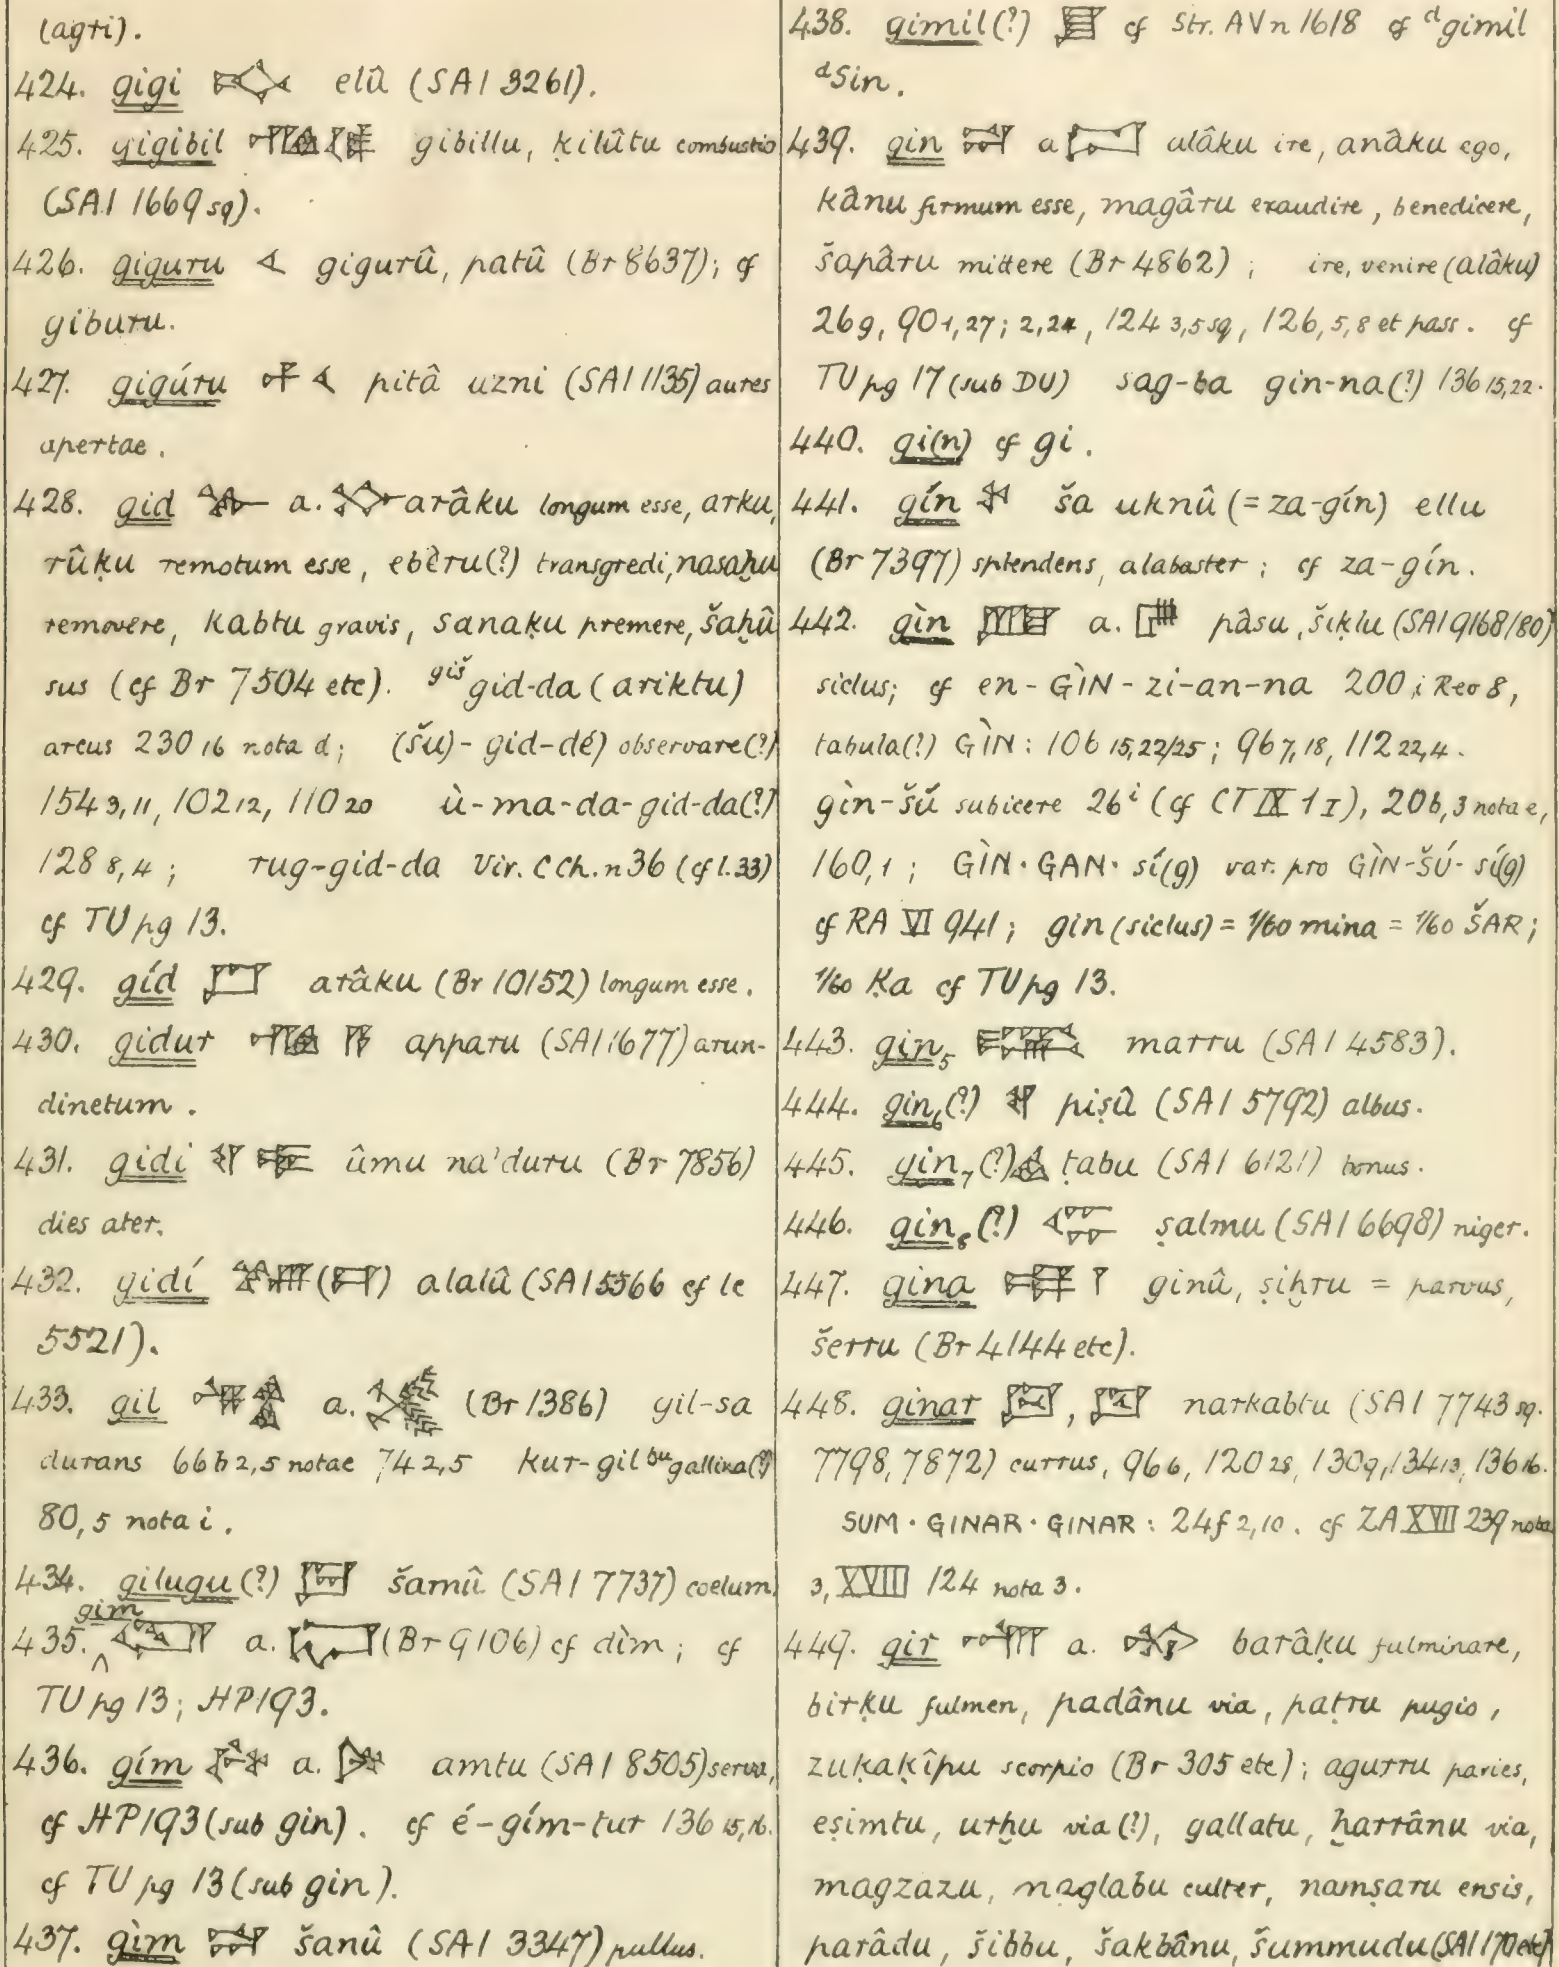 (agri).
424. gigi elû (SAI 3261).
425. gigibil gibillu, ḳilûtu combustio
(SAI 1669 sq).
426. giguru gigurû, patû (Br 8637); cf
giburu.
427. gigúru pitâ uzni (SAI 1135) aures
apertae.
428. gid a. arâku longum esse, arku,
rûḳu remotum esse, ebêru(?) transgredi, nasaḫu
removere, kabtu gravis, sanaḳu premere, šaḫû
sus (cf Br 7504 etc). giš gid-da (ariktu)
arcus 230 16 nota d; (šu)-gid-dé) observare(?)
154 3,11, 102 12, 110 20 ù-ma-da-gid-da(?)
128 8,4; rug-gid-da Vir. C Ch. n 36 (cf l. 33)
cf TU pg 13.
429. gíd arâku (Br 10152) longum esse.
430. gidur apparu (SAI 1677) arun-
dinetum.
431. gidi ûmu na'duru (Br 7856)
dies ater.
432. gidí alalû (SAI 5566 cf le
5521).
433. gil a. (Br 1386) gil-sa
durans 66 b 2,5 notae 74 2,5 kur-gil bu gallina(?)
80, 5 nota i.
434. gilugu(?) šamû (SAI 7737) coelum.
435. gim a. (Br 9106) cf dìm; cf
TU pg 13; HP 193.
436. gím a. amtu (SAI 8505) serva,
cf HP 193 (sub gin). cf é-gím-tur 136 15,16.
cf TU pg 13 (sub gin).
437. gìm šanû (SAI 3347) pullus.
438. gimil(?) cf Str. AV n 1618 cf d gimil
d Sin.
439. gin a alâku ire, anâku ego,
kânu firmum esse, magâru exaudire, benedicere,
šapâru mittere (Br 4862); ire, venire (alâku)
26 g, 90 1,27; 2,24, 124 3,5 sq, 126, 5,8 et pass. cf
TU pg 17 (sub DU) sag-ba gin-na(?) 136 15,22.
440. gi(n) cf gi.
441. gín ša uknû (= za-gín) ellu
(Br 7397) splendens, alabaster; cf za-gín.
442. gìn a. pâsu, šiḳlu (SAI 9168/80)
siclus; cf en-GÌN-zi-an-na 200 i Rev 8,
tabula(?) GÌN: 106 15,22/25; 96 7,18, 112 22,4.
gìn-šú subicere 26 i (cf CT IX 1 I), 206, 3 nota e,
160,1; GÌN·GAN·sí(g) var. pro GÌN-ŠÚ-sí(g)
cf RA VI 941; gin (siclus) = 1/60 mina = 1/60 ŠAR;
1/60 Ḳa cf TU pg 13.
443. gin5 marru (SAI 4583).
444. gin6(?) piṣû (SAI 5792) albus.
445. gin7(?) ṭabu (SAI 6121) bonus.
446. gin8(?) ṣalmu (SAI 6698) niger.
447. gina ginû, ṣiḫru = parvus,
šerru (Br 4144 etc).
448. ginar , narkabtu (SAI 7743 sq.
7798, 7872) currus, 96 6, 120 28, 130 9, 134 13, 136 16.
SUM·GINAR·GINAR: 24 f 2,10. cf ZA XVII 239 nota
3, XVIII 124 nota 3.
449. gir a. barâḳu fulminare,
birḳu fulmen, padânu via, paṭru pugio,
zuḳaḳîpu scorpio (Br 305 etc); agurru paries,
eṣimtu, urḫu via (?), gallatu, ḫarrânu via,
magzazu, naglabu culter, namṣaru ensis,
parâdu, šibbu, šakbânu, šummudu (SAI 170 etc)